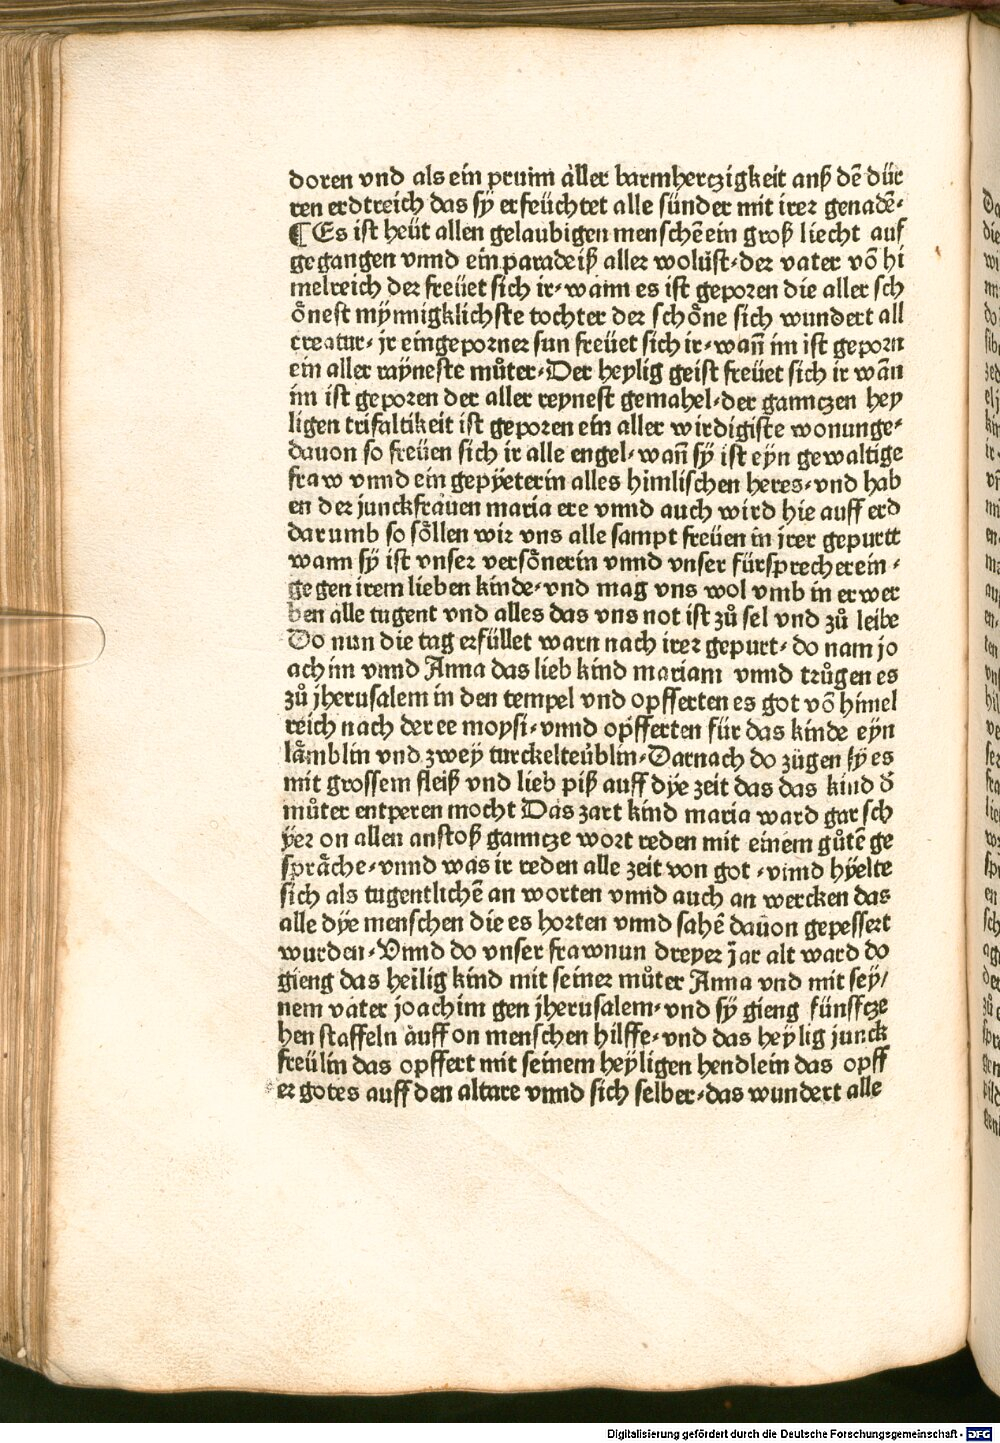 doren vnd als ein prunn aller barmherczigkeit auß dē dür
ren erdtreich das sÿ erfeüchtet alle sünder mit irer genadē⸗
¶Es ist heüt allen gelaubigen menschē ein groß liecht auf
gegangen vnnd ein paradeiß aller wolüst⸗der vater vō hi
melreich der freüet sich ir⸗wann es ist geporen die aller sch
oͤnest mÿnnigklichste tochter der schoͤne sich wundert all
creatur⸗ jr eingeporner sun freüet sich ir⸗wañ im ist geporn
ein aller raÿneste muͦter⸗Der heylig geist freüet sich ir wān
im ist geporen der aller reynest gemahel⸗der ganntzen hey
ligen trifaltikeit ist geporen ein aller wirdigiste wonunge⸗
dauon so freüen sich ir alle engel⸗wañ sÿ ist eÿn gewaltige
fraw vnnd ein gepÿeterin alles himlischen heres⸗vnd hab
en der junckfrauen maria ere vnnd auch wird hie auff erd
darumb so soͤllen wir vns alle sampt freüen in jrer gepurtt
wann sÿ ist vnser versoͤnerin vnnd vnser fürsprecherein⸗
gegen irem lieben kinde⸗vnd mag vns wol vmb in erwer
ben alle tugent vnd alles das vns not ist zuͦ sel vnd zuͦ leibe
Do nun die tag erfüllet warn nach irer gepurt⸗ do nam jo
achim vnnd Anna das lieb kind mariam vnnd truͦgen es
zuͦ jherusalem in den tempel vnd opfferten es got vō himel
reich nach der ee moysi⸗vnnd opfferten für das kinde eÿn
laͤmblin vnd zweÿ turckelteüblin⸗Darnach do zügen sÿ es
mit grossem fleiß vnd lieb piß auff dÿe zeit das das kind d̄
muͦter entperen mocht Das zart kind maria ward gar sch
ÿer on allen anstoß ganncze wort reden mit einem guͦtē ge
spraͤche⸗vnnd was ir reden alle zeit von got ⸗vnnd hÿelte
sich als tugentlichē an worten vnnd auch an wercken das
alle dÿe menschen die es horten vnnd sahē dauon gepessert
wurden⸗Vnnd do vnser fraw nun dreyer jar alt ward do
gieng das heilig kind mit seiner muͦter Anna vnd mit seÿ/
nem vater joachim gen jherusalem⸗vnd sÿ gieng fünffcze
hen staffeln auff on menschen hilffe⸗vnd das heÿlig junck
freülin das opffert mit seinem heÿligen hendlein das opff
er gotes auff den altare vnnd sich selber⸗das wundert alle
Digitalisierung gefördert durch die Deutsche Forschungsgemeinschaft - DFG